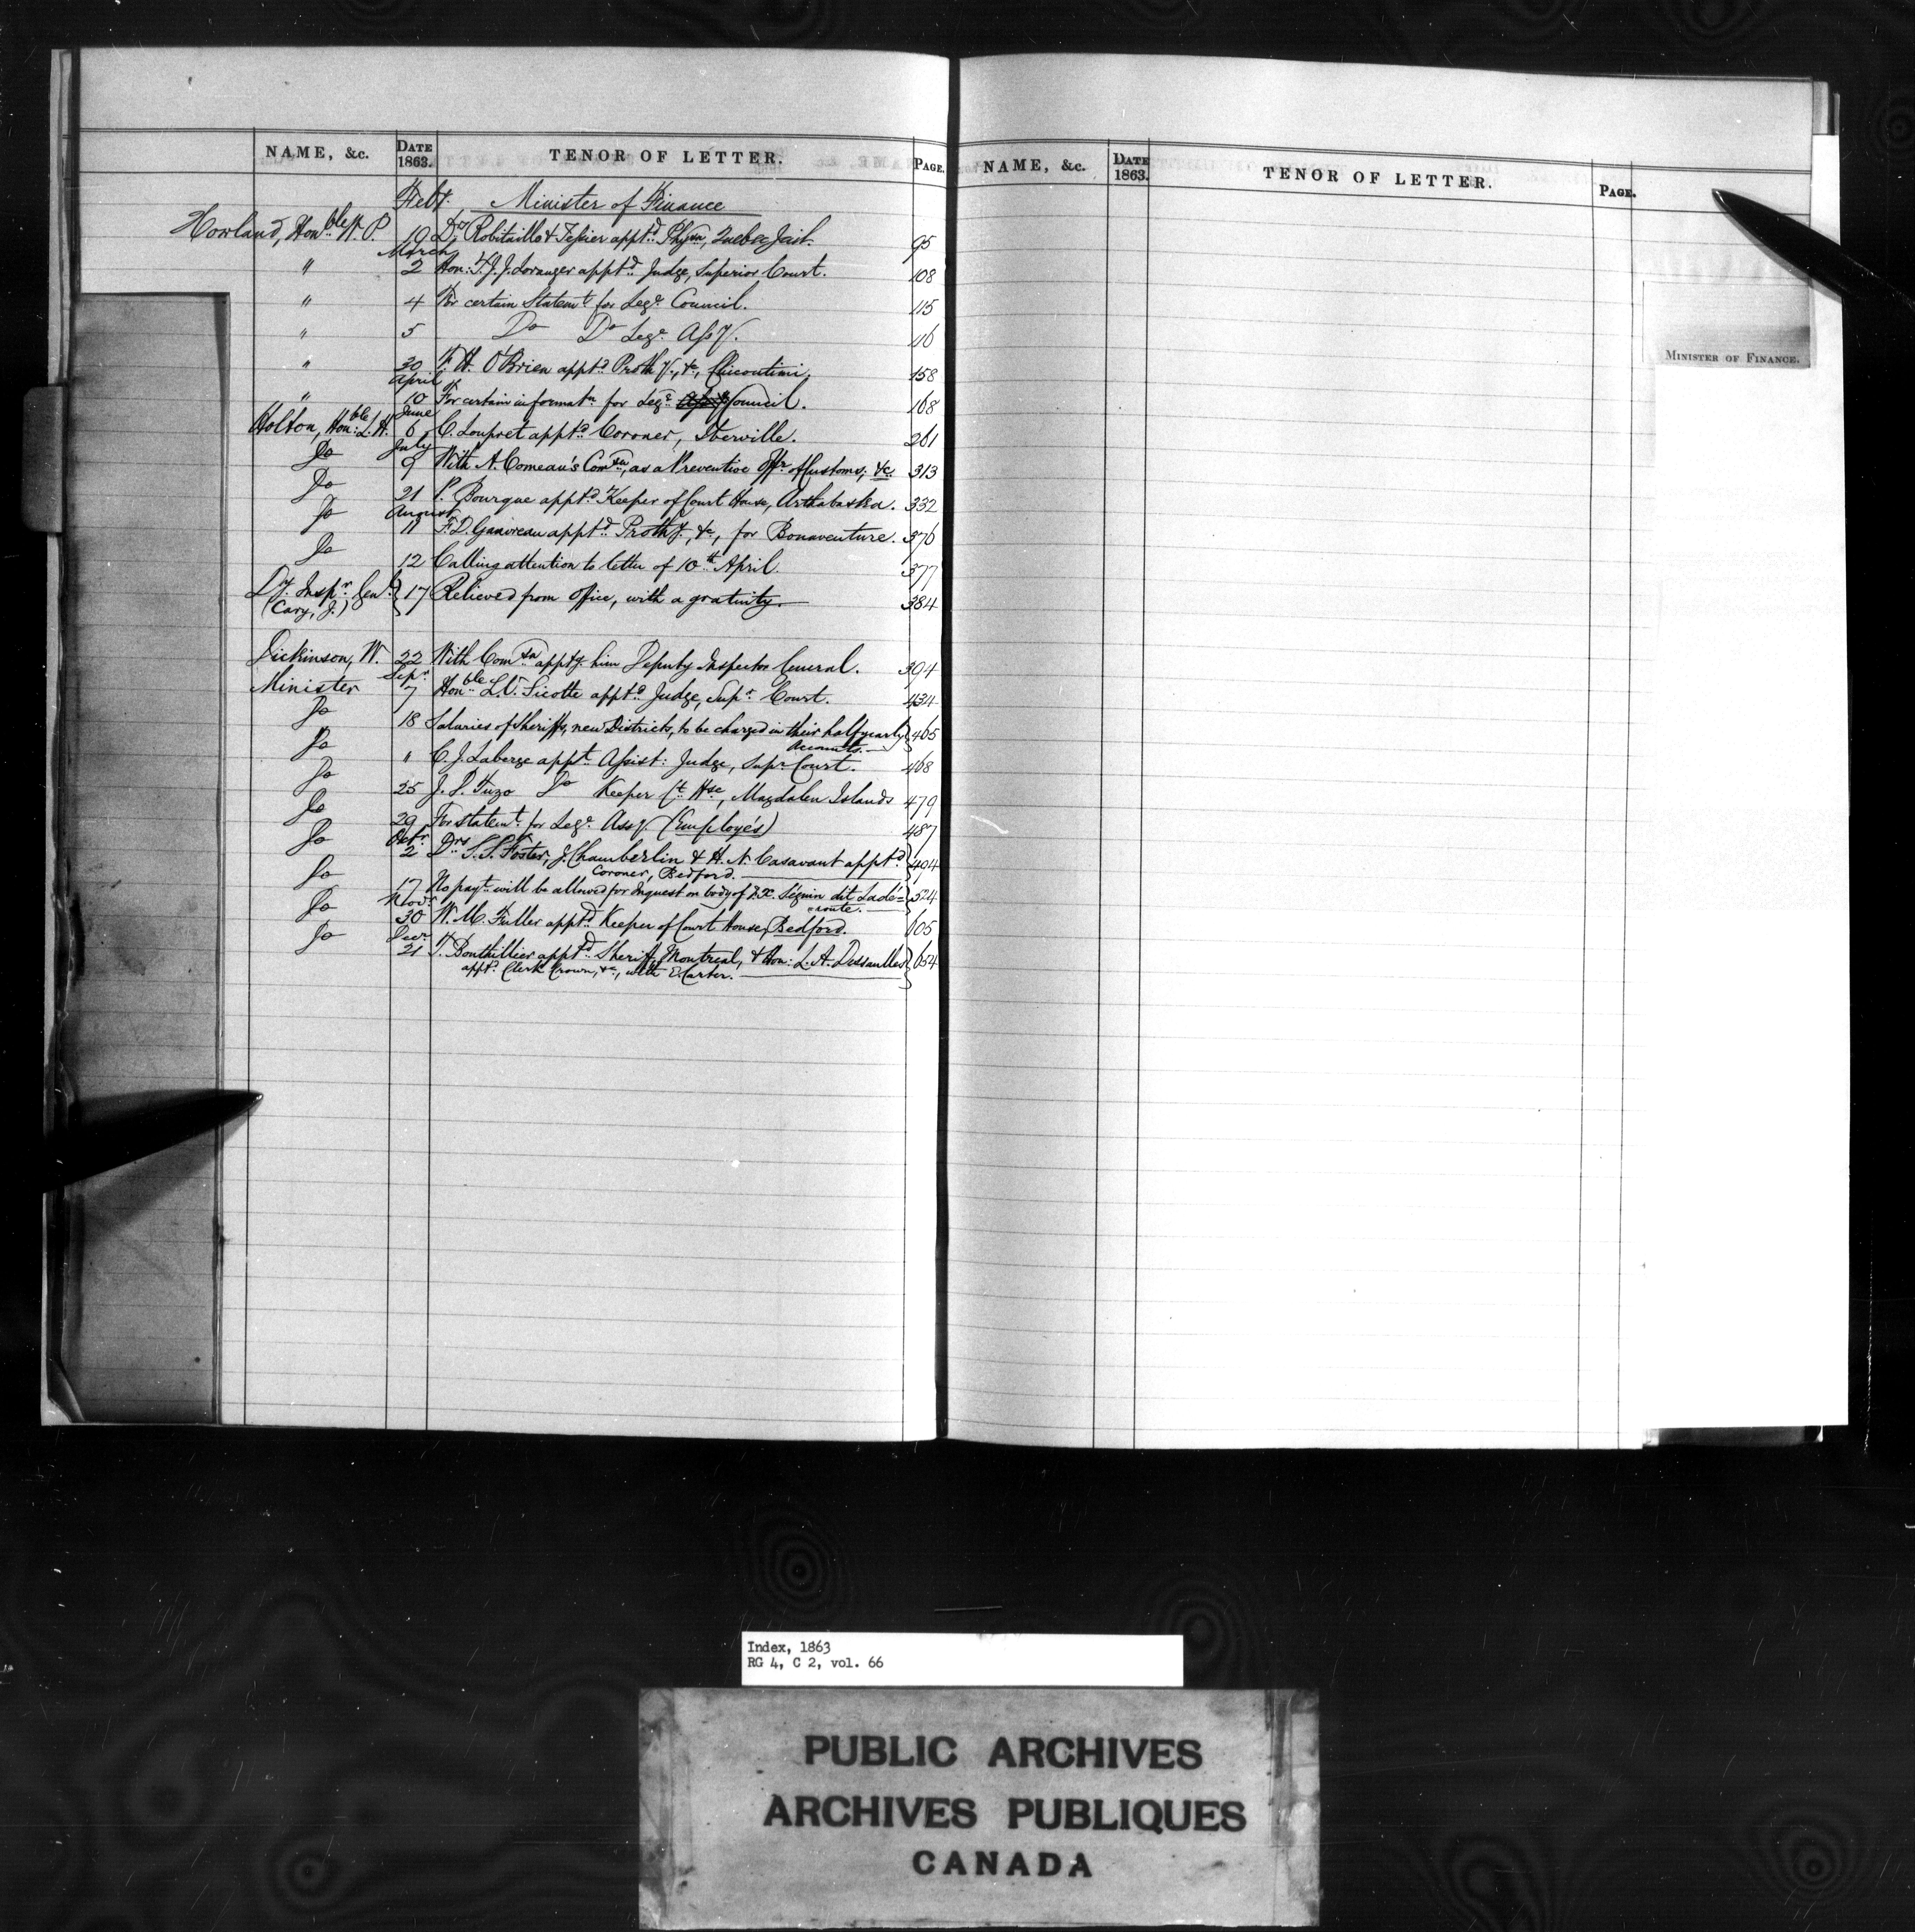 NAME, &c. DATE 1863. TENOR OF LETTER. PAGE.
Feby. Minister of Finance
Howland, Honble W. P. 19 Drs Robitaille & Tessier apptd Physn, Quebec Jail. 95
March
" 2 Hon: T. J. J. Loranger apptd Judge, Superior Court. 108
" 4 For certain Statemt for Lege Council. 115
" 5 Do Do Lege Assy. 116
" 30 F. H. O'Brien apptd Prothy., &c, Chicoutimi. 158
April
" 10 For certain informatn for Lege Assy Council. 168
June
Holton, Honble: L. H. 6 C. Loupret apptd Coroner, Iberville. 261
July
Do 9 With A. Comeau's Comsn, as a Preventive Offr of Customs, &c. 313
Do 21 P. Bourque apptd Keeper of Court House, Arthabaska. 332
August
Do 11 F. D. Gauvreau apptd Prothy., &c, for Bonaventure. 376
Do 12 Calling attention to letter of 10th April. 377
Dy. Inspr Genl. 17 Relieved from office, with a gratuity. 384
(Cary, J.)
Dickinson, W. 22 With Comsn apptg. him Deputy Inspector General. 394
Sepr.
Minister 7 Honble L. V. Sicotte apptd Judge, Supr Court. 434
Do 18 Salaries of Sheriffs, new Districts, to be charged in their half yearly 465
Accounts.
Do " C. J. Laberge appt Assist: Judge, Supr Court. 468
Do 25 J. P. Tuzo Do Keeper Ct Hse, Magdalen Islands 479
Do 29 For statemt for Lege Assy. (Employés) 487
Octr.
Do 2 Drs S. S. Foster, J. Chamberlin & H. N. Casavant apptd 494
Coroner, Bedford.
Do 17 No payt will be allowed for Inquest on body of F. X. Séguin dit Ladé= 524
=route.
Novr
Do 30 W. M. Fuller apptd Keeper of Court House, Bedford. 605
Decr
Do 21 T. Bouthillier apptd Sheriff, Montreal, & Hon: L. A. Dessaulles 654
apptd Clerk Crown, &c, with E. Carter.
NAME, &c. DATE 1863. TENOR OF LETTER. PAGE.
MINISTER OF FINANCE.
Index, 1863
RG 4, C 2, vol. 66
PUBLIC ARCHIVES
ARCHIVES PUBLIQUES
CANADA